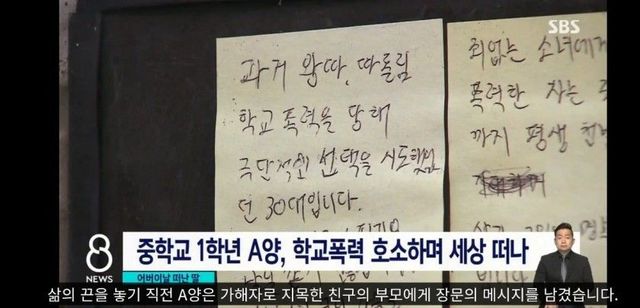 SBS
과거 왕따, 따돌림
학교 폭력을 당해
극단적인 선택을 시도했었
던 30대입니다.
죄없는 소녀에게
폭력한 자는
까지 평생
8 NEWS
중학교 1학년 A양, 학교폭력 호소하며 세상 떠나
어버이날 떠난 딸
삶의 끈을 놓기 직전 A양은 가해자로 지목한 친구의 부모에게 장문의 메시지를 남겼습니다.